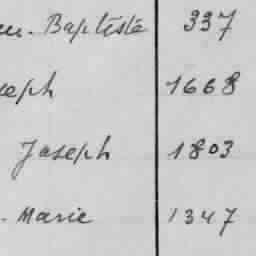 Baptiste 337
seph 1668
Joseph 1803
- Marie 1347